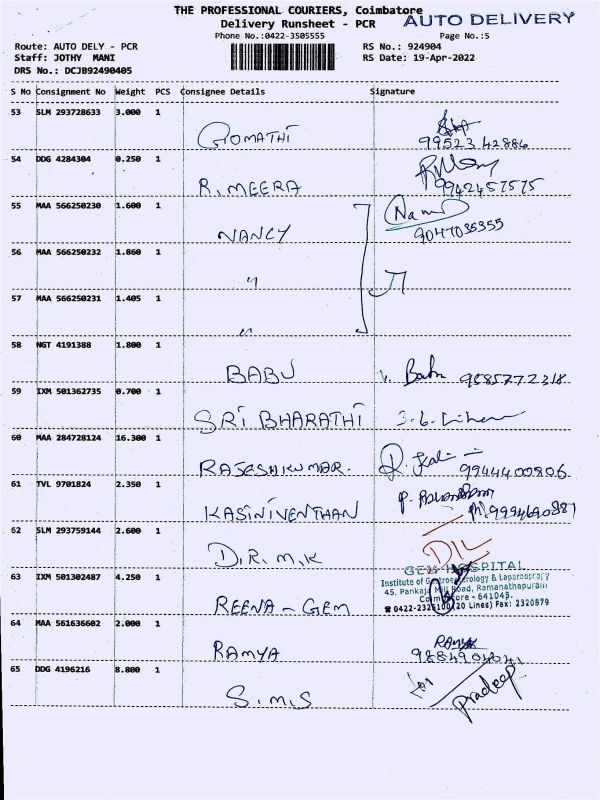 THE PROFESSIONAL COURIERS, Coimbatore
Delivery Runsheet - PCR
AUTO DELIVERY
Phone No.:0422-3505555
Page No.:5
Route: AUTO DELY - PCR
RS No.: 924904
Staff: JOTHY MANI
RS Date: 19-Apr-2022
DRS No.: DCJB92490405
S No Consignment No Weight PCS Consignee Details Signature
53 SLM 293728633 3.000 1
GOMATHI
99523 42886
54 DDG 4284304 0.250 1
R.MEERA 9942457575
55 MAA 566250230 1.600 1
NANCY
9047035355
56 MAA 566250232 1.860 1
"
57 MAA 566250231 1.405 1
"
58 NGT 4191388 1.800 1
BABU Babu 9585772318
59 IXM 501362735 0.700 1
SRI BHARATHI
60 MAA 284728124 16.300 1
RAJESHKUMAR. 9944400806
61 TVL 9701824 2.350 1
KASINIVENTHAN
62 SLM 293759144 2.600 1
D.R.M.K DIL
63 IXM 501302487 4.250 1
GEM HOSPITAL
Institute of Gastroenterology & Laparoscopy
45, Pankaja Mill Road, Ramanathapuram
Coimbatore - 641045.
REENA - GEM
☎ 0422-2325100(20 Lines) Fax: 2320879
64 MAA 561636602 2.000 1
RAMYA
RAMYA
65 DDG 4196216 8.800 1
S.M.S Pradeep